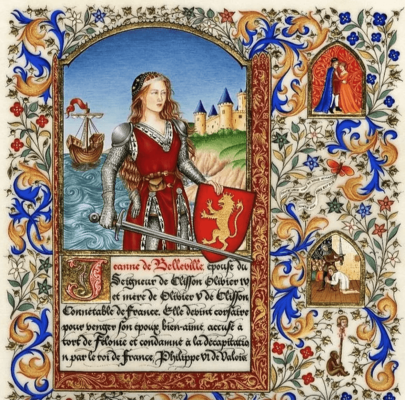 Jeanne de Belleville, épouse du
Seigneur de Clisson Olivier IV
et mère de Olivier V de Clisson
Connétable de France. Elle devint corsaire
pour venger son époux bien-aimé, accusé à
tort de félonie et condamné à la décapitatio
n par le roi de France, Philippe VI de Valois